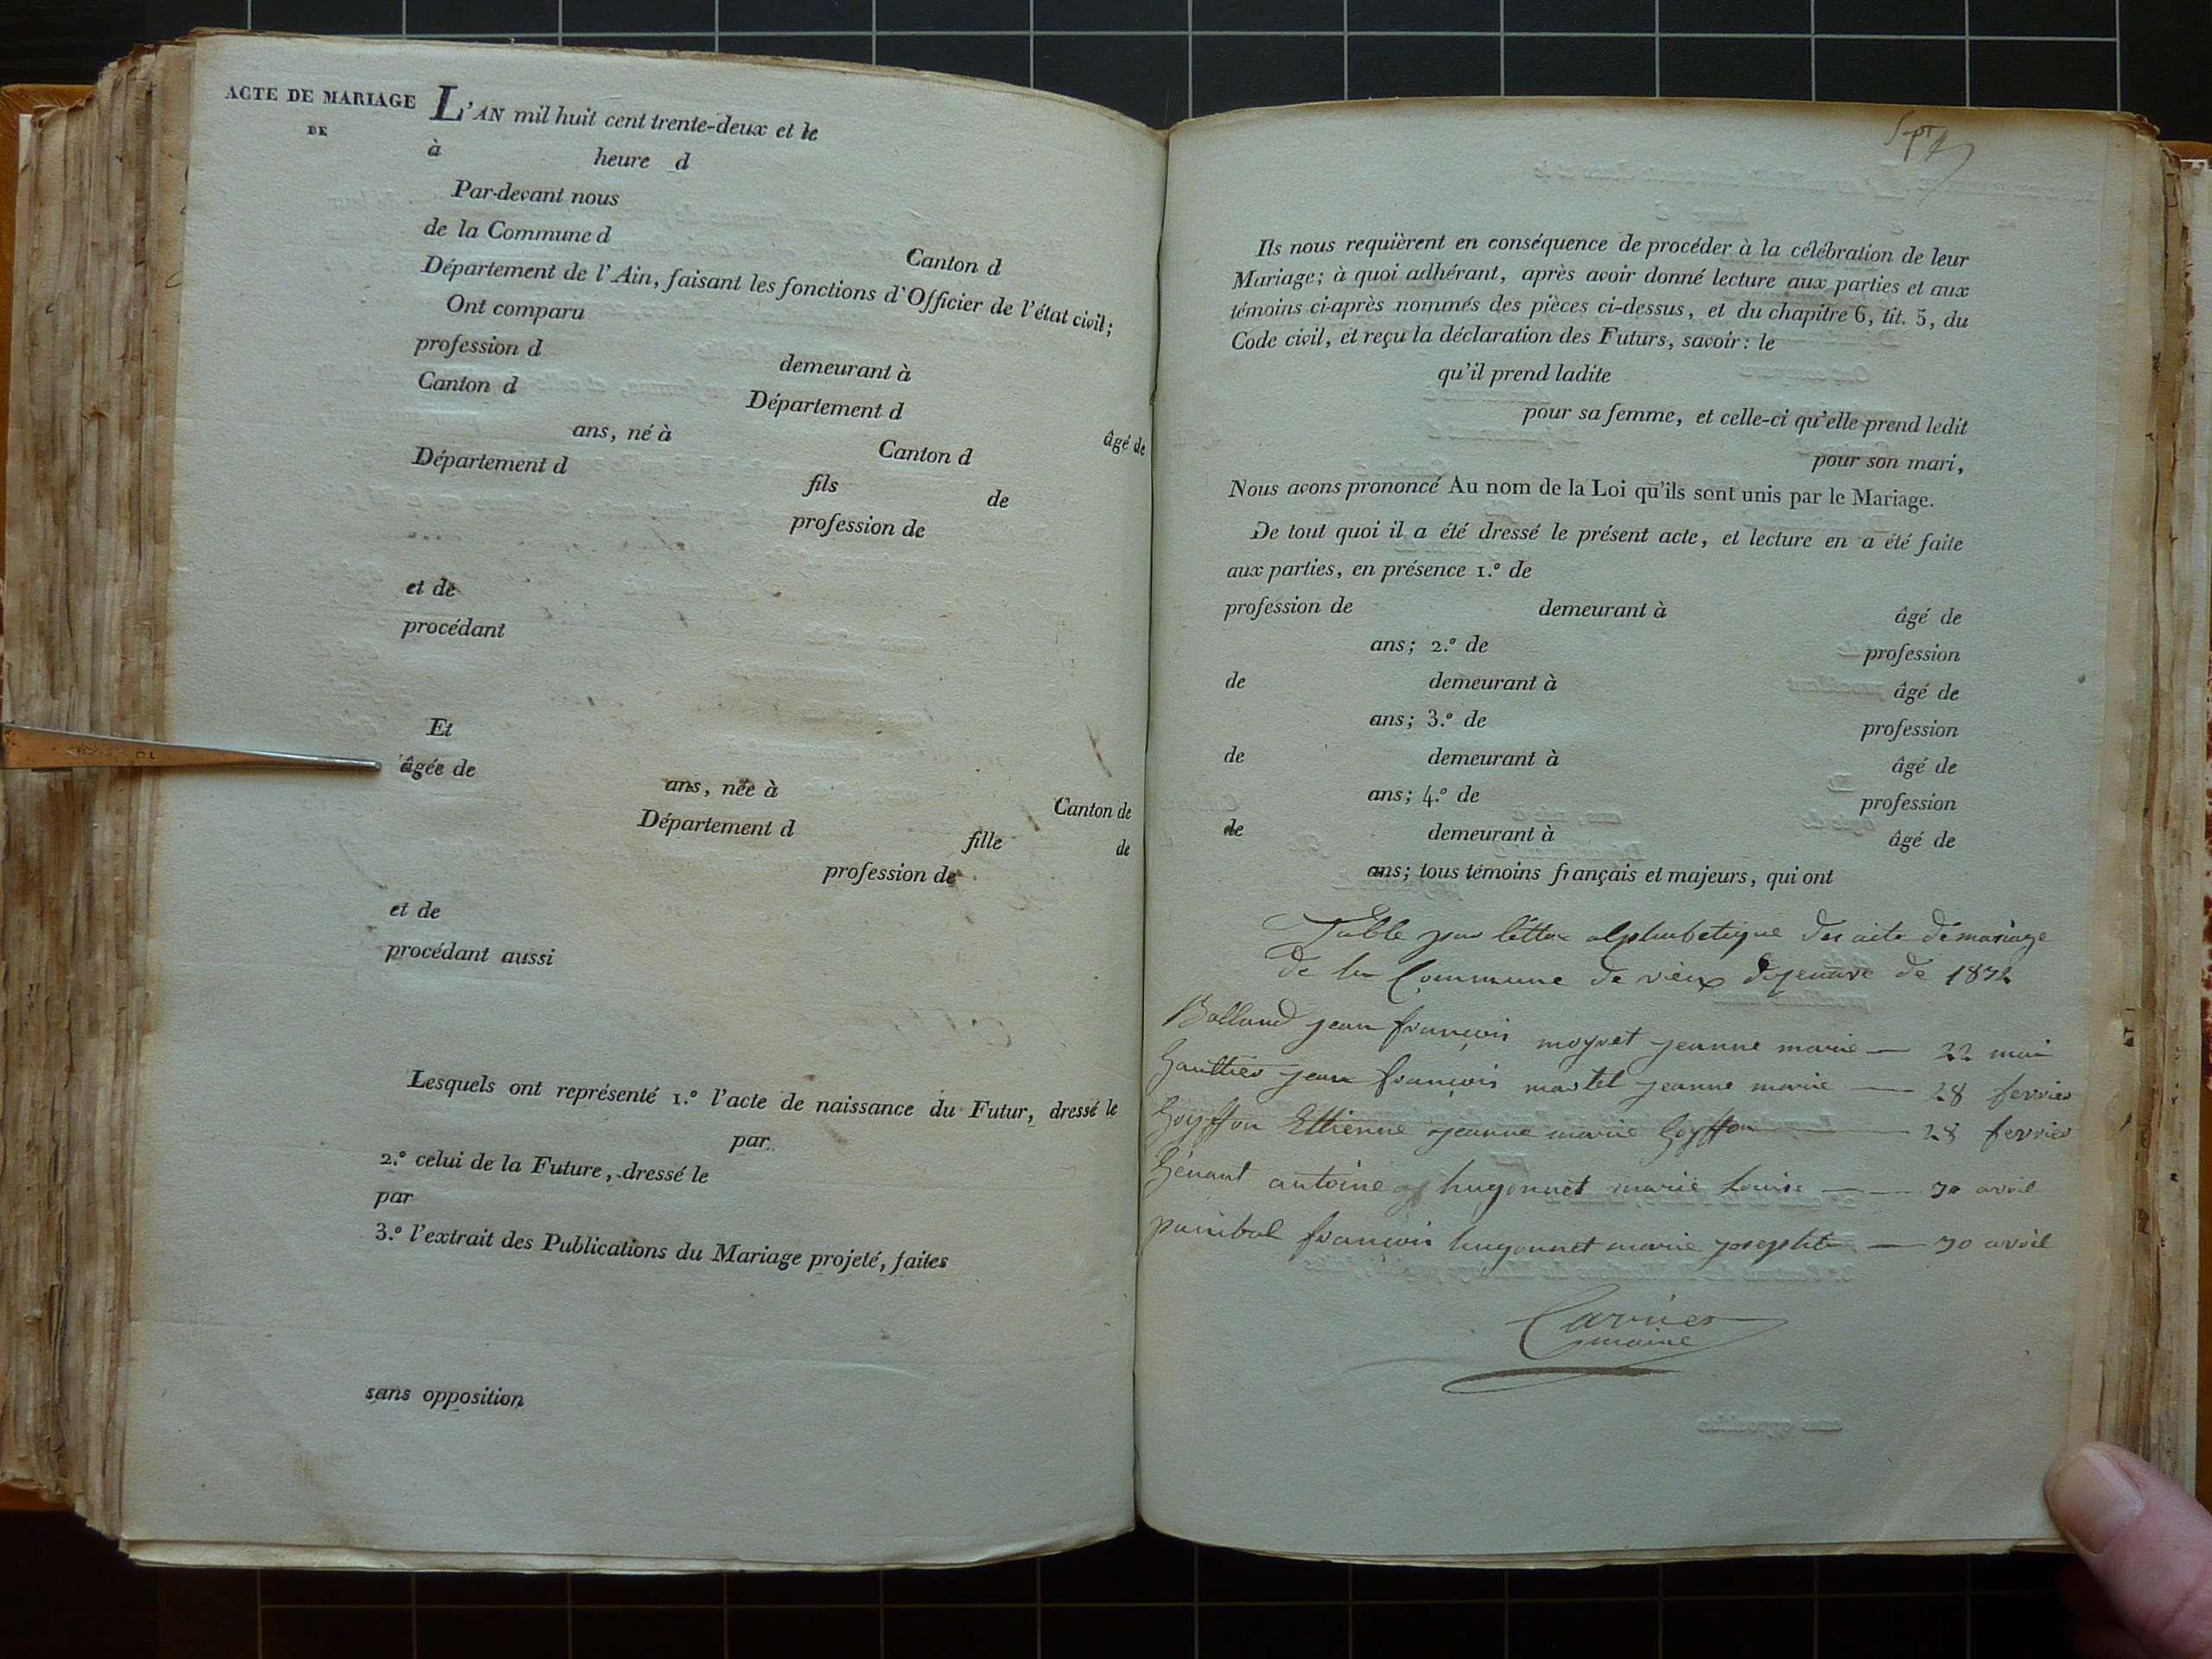 ACTE DE MARIAGE
DE
L'AN mil huit cent trente-deux et le
à heure d
Par-devant nous
de la Commune d Canton d
Département de l'Ain, faisant les fonctions d'Officier de l'état civil;
Ont comparu
profession d demeurant à
Canton d Département d âgé de
ans, né à Canton d
Département d fils de
profession de
et de
procédant
Et
âgée de ans, née à Canton de
Département d fille de
profession de
et de
procédant aussi
Lesquels ont représenté 1.º l'acte de naissance du Futur, dressé le
par
2.º celui de la Future, dressé le
par
3.º l'extrait des Publications du Mariage projeté, faites
sans opposition
Sept
Ils nous requièrent en conséquence de procéder à la célébration de leur
Mariage; à quoi adhérant, après avoir donné lecture aux parties et aux
témoins ci-après nommés des pièces ci-dessus, et du chapitre 6, tit. 5, du
Code civil, et reçu la déclaration des Futurs, savoir: le
qu'il prend ladite
pour sa femme, et celle-ci qu'elle prend ledit
pour son mari,
Nous avons prononcé Au nom de la Loi qu'ils sont unis par le Mariage.
De tout quoi il a été dressé le présent acte, et lecture en a été faite
aux parties, en présence 1.º de
profession de demeurant à âgé de
ans; 2.º de profession
de demeurant à âgé de
ans; 3.º de profession
de demeurant à âgé de
ans; 4.º de profession
de demeurant à âgé de
ans; tous témoins français et majeurs, qui ont
Table par lettre alphabetique des acte de mariage
de la Commune de vieux de 1832
Bolland jean françois moyret jeanne marie — 22 mai
Gauttier jean françois martel jeanne marie — 28 fevrier
Goyffon Ettienne jeanne marie Goyffon — 28 fevrier
Génant antoine hugonnet marie Louise — 30 avril
panibal françois hugonnet marie josephte — 30 avril
Carrier
maire